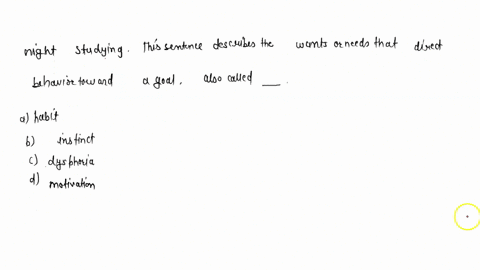 night studying. This sentence describes the wants or needs that direct
behavior toward a goal, also called __.
a) habit
b) instinct
c) dysphoria
d) motivation